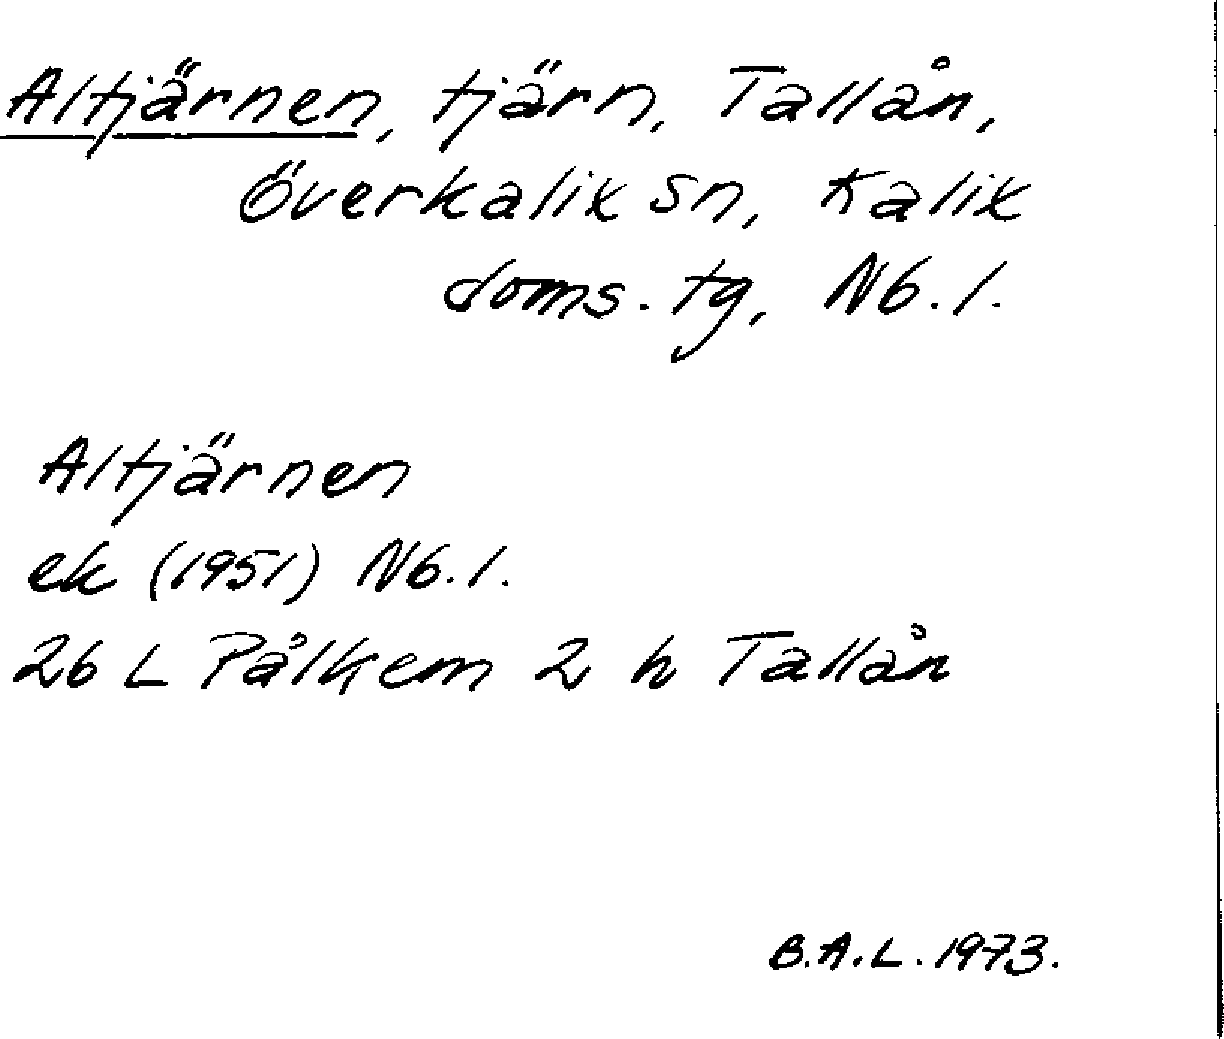 Altjärnen, tjärn, Tallån,
Överkalix sn, Kalix
doms. tg, Nb. l.
Altjärnen
ek (1951) Nb. l.
26 L Pålkem 2 h Tallån
B.A.L. 1973.